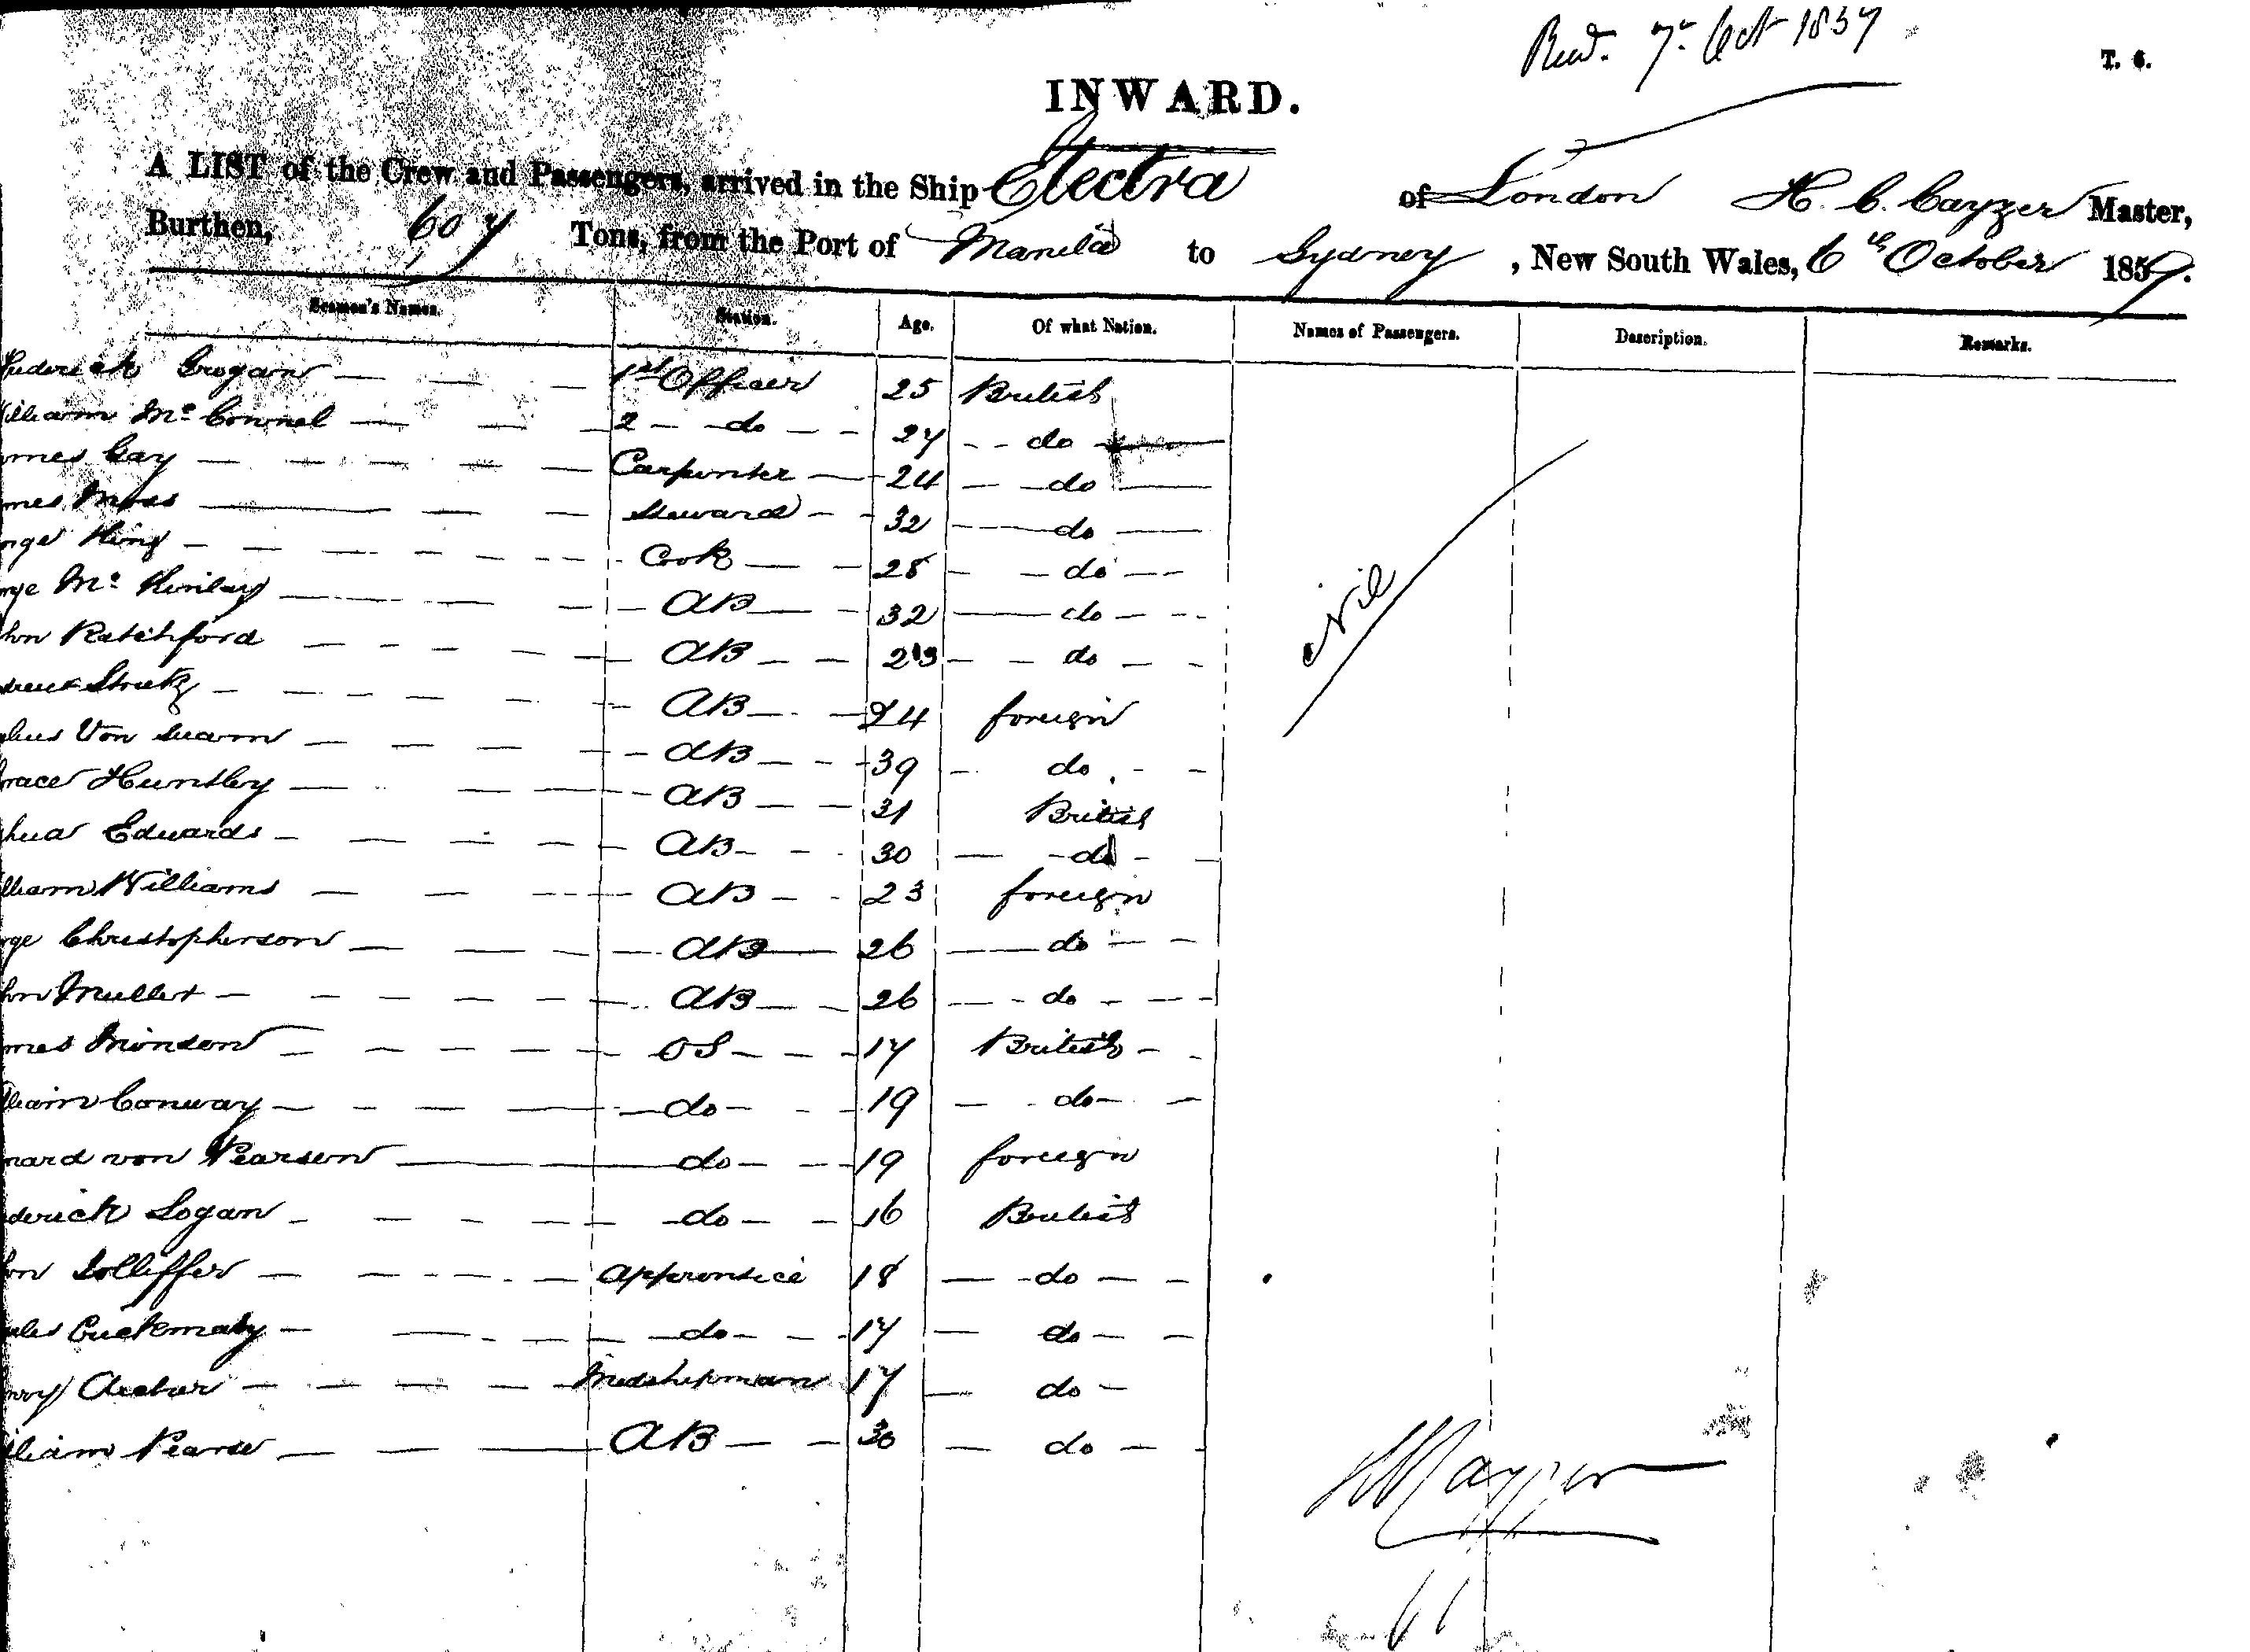 Recd. 7th Oct 1857
T. 6.
INWARD.
A LIST of the Crew and Passengers, arrived in the Ship Electra of London H. C. Cayzer Master,
Burthen, 607 Tons, from the Port of Manila to Sydney, New South Wales, 6th October 1857.
Seamen's Names. Station. Age. Of what Nation. Names of Passengers. Description. Remarks.
Frederick Grogan 1st Officer 25 British
William McConnel 2 do 27 do
James Gay Carpenter 24 do
James Moss Steward 32 do
George King Cook 28 do
George McKinlay AB 32 do
John Ratchford AB 23 do
AB 24 foreign
Von AB 39 do
Horace Huntley AB 31 British
Joshua Edwards AB 30 do
William Williams AB 23 foreign
George Christopherson AB 26 do
John Muller AB 26 do
James OS 17 British
William Conway do 19 do
von Pearsen do 19 foreign
Frederick Logan do 16 British
John Jolliffer Apprentice 18 do
Charles do 17 do
Henry Midshipman 17 do
William Pearse AB 30 do
Nil
H C Cayzer